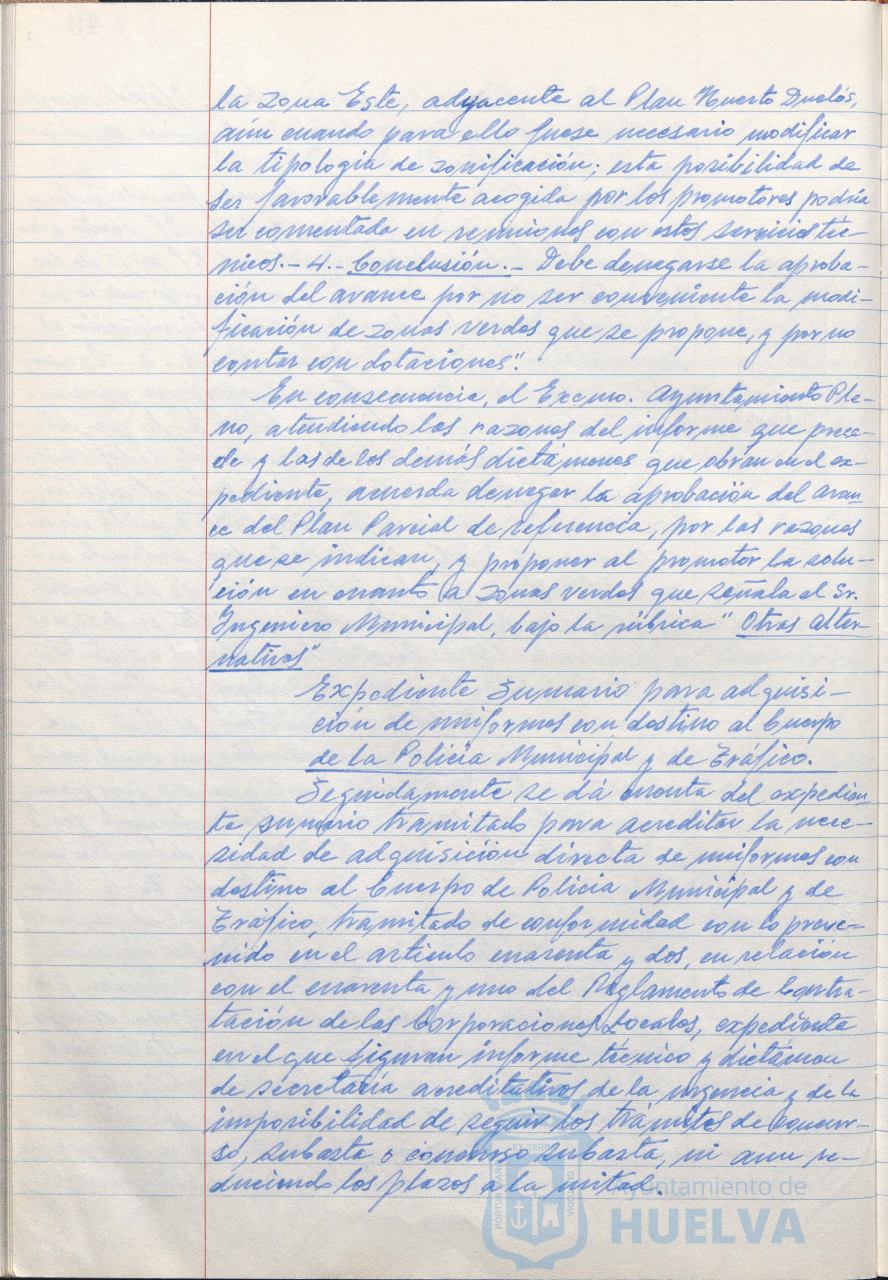 la zona Este, adyacente al Plan Huerto Duclós,
aún cuando para ello fuese necesario modificar
la tipología de zonificación; esta posibilidad de
ser favorablemente acogida por los promotores podría
ser comentada en reuniones con estos servicios téc-
nicos.- 4.- Conclusión.- Debe denegarse la aproba-
ción del avance por no ser conveniente la modi-
ficación de zonas verdes que se propone, y por no
contar con dotaciones".
En consecuencia, el Excmo. Ayuntamiento Ple-
no, atendiendo las razones del informe que prece-
de y las de los demás dictámenes que obran en el ex-
pediente, acuerda denegar la aprobación del avan-
ce del Plan Parcial de referencia, por las razones
que se indican, y proponer al promotor la solu-
ción en cuanto a zonas verdes que señala el Sr.
Ingeniero Municipal, bajo la rúbrica "Otras alter-
nativas"
Expediente Sumario para adquisi-
ción de uniformes con destino al Cuerpo
de la Policía Municipal y de Tráfico.
Seguidamente se dá cuenta del expedien-
te sumario tramitado para acreditar la nece-
sidad de adquisición directa de uniformes con
destino al Cuerpo de Policía Municipal y de
Tráfico, tramitado de conformidad con lo preve-
nido en el artículo cuarenta y dos, en relación
con el cuarenta y uno del Reglamento de Contra-
tación de las Corporaciones Locales, expediente
en el que figuran informe técnico y dictámen
de secretaría acreditativos de la urgencia y de la
imposibilidad de seguir los trámites de concur-
so, subasta o concurso subasta, ni aun re-
duciendo los plazos a la mitad.
Ayuntamiento de
HUELVA